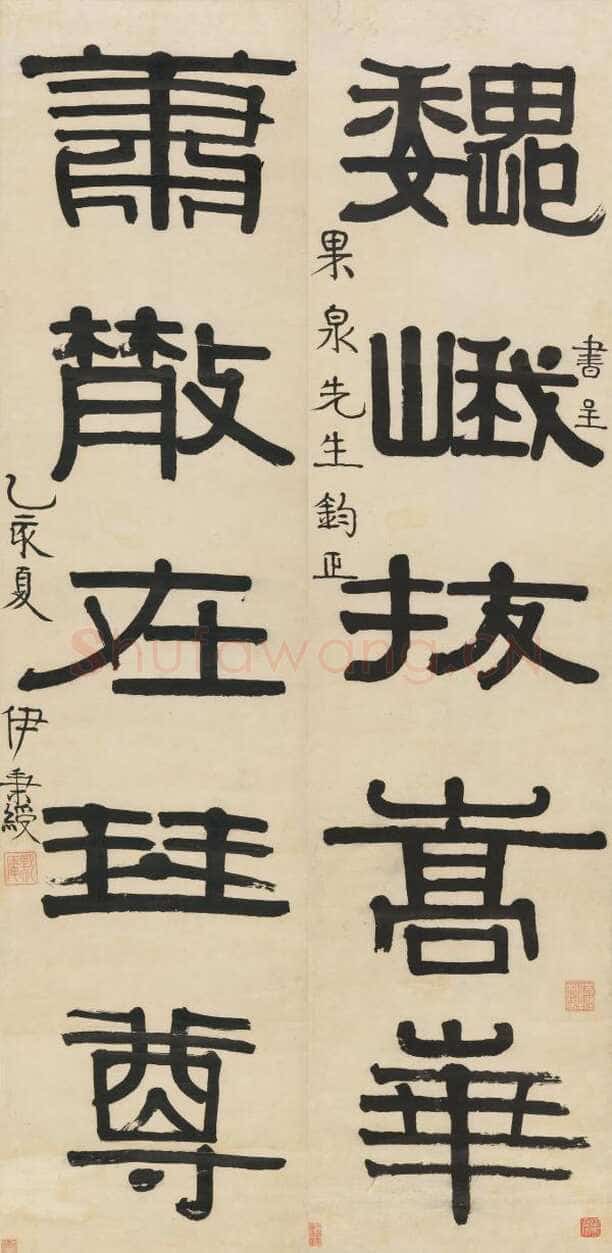 書呈
巍峨拔嵩華
果泉先生鈞正
蕭散在琴尊
乙亥夏 伊秉綬
Shufawang.CN